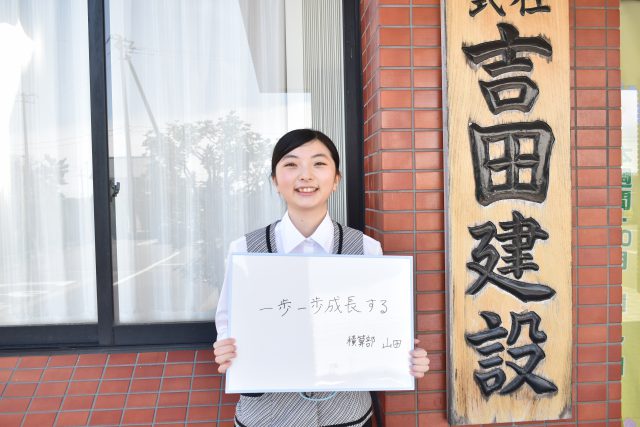 吉田建設
一歩一歩成長する
積算部 山田